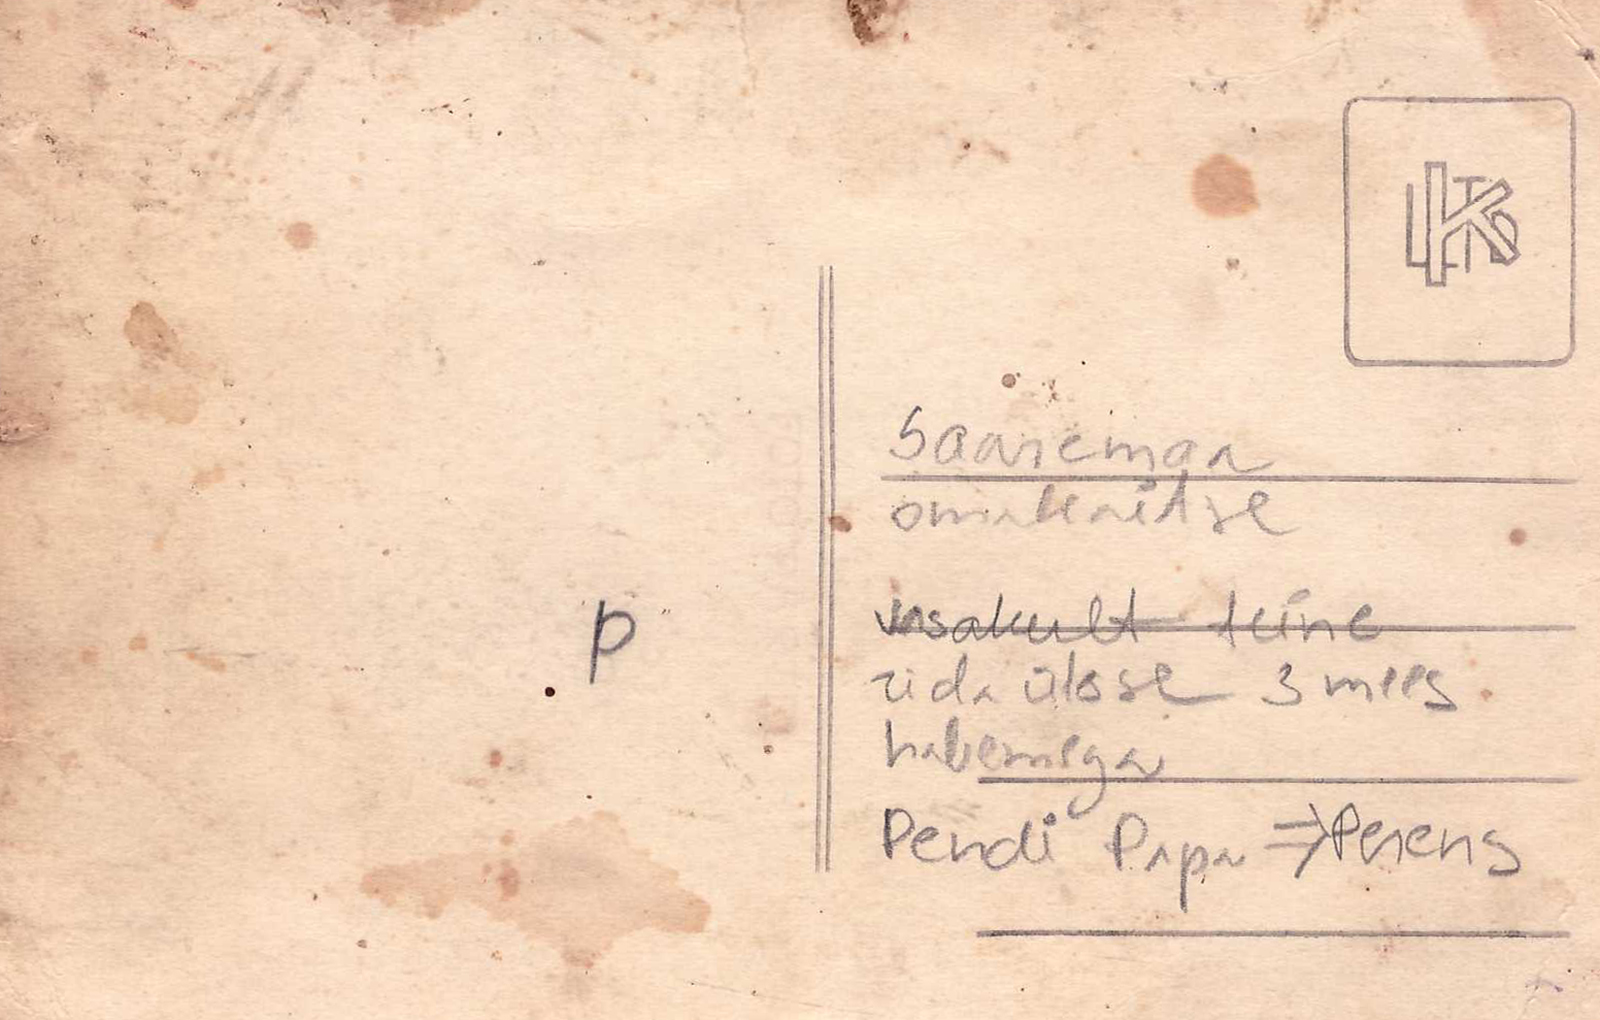 Saaremaa
omakaitse
vasakult teine
rida ülesse 3 mees
habemega
Pendi Papa ⇒ Perens
P